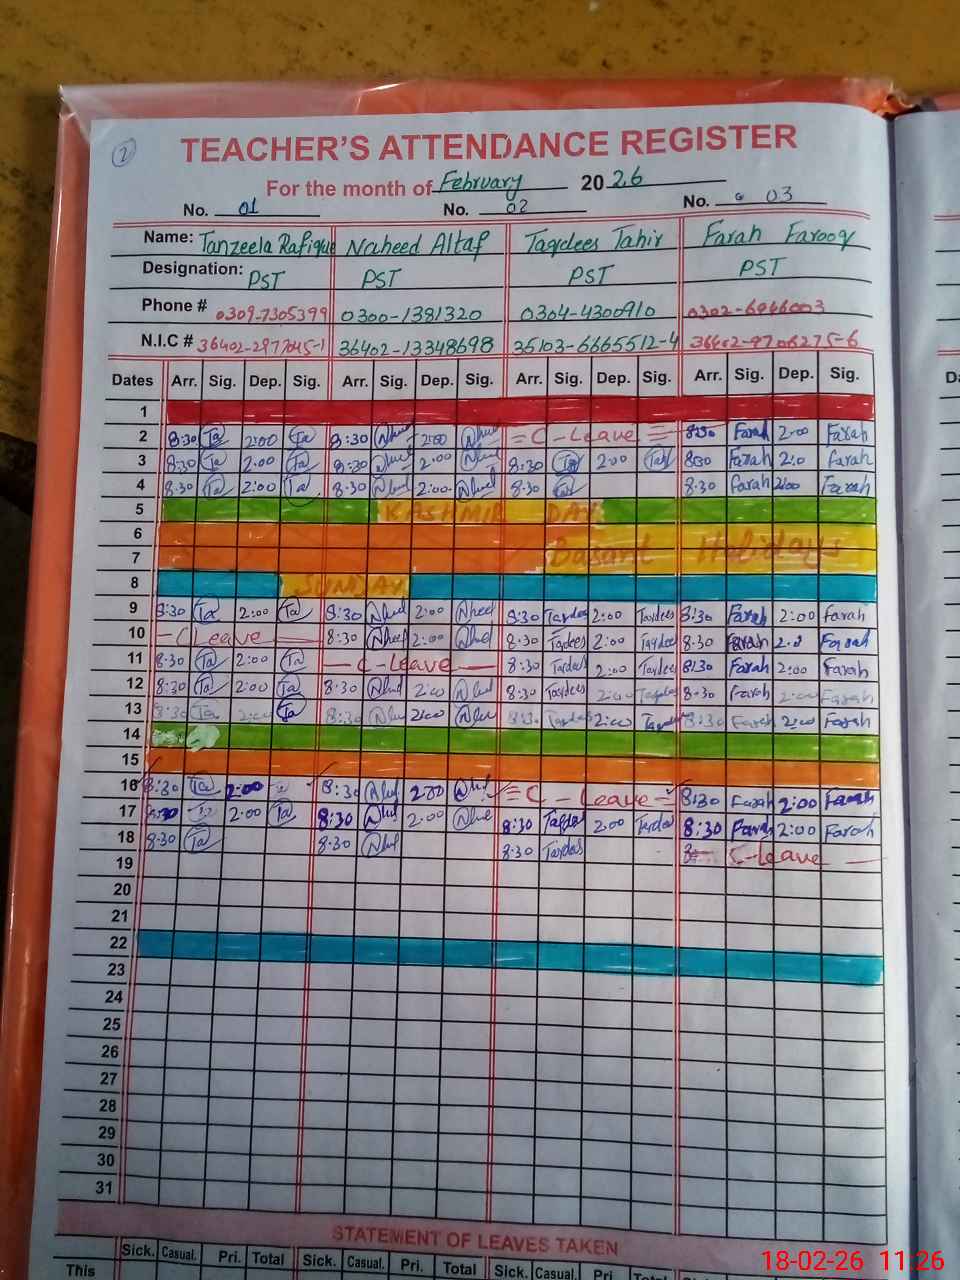 2
TEACHER'S ATTENDANCE REGISTER
For the month of February 2026
No. 01 No. 02 No. 03
Name: Tanzeela Rafique Naheed Altaf Taqdees Tahir Farah Farooq
Designation: PST PST PST PST
Phone # 0309-7305399 0300-1381320 0304-4300910 0302-6946003
N.I.C # 36402-2977045-1 36402-13348698 35103-6665512-4 36402-9706275-6
Dates Arr. Sig. Dep. Sig. Arr. Sig. Dep. Sig. Arr. Sig. Dep. Sig. Arr. Sig. Dep. Sig.
1
2 8:30 Ta 2:00 Ta 8:30 2:00 C-Leave 8:30 Farah 2:00 Farah
3 8:30 Ta 2:00 Ta 8:30 2:00 8:30 2:00 8:30 Farah 2:0 Farah
4 8:30 Ta 2:00 Ta 8:30 2:00 8:30 8:30 Farah 2:00 Farah
5 KASHMIR DAY
6 Basant Holidays
7
8 SUNDAY
9 8:30 Ta 2:00 Ta 8:30 2:00 8:30 Taqdees 2:00 Taqdees 8:30 Farah 2:00 Farah
10 C Leave 8:30 2:00 8:30 Taqdees 2:00 Taqdees 8:30 Farah Farah
11 8:30 Ta 2:00 Ta C-Leave 8:30 Taqdees 2:00 Taqdees 8:30 Farah 2:00 Farah
12 8:30 Ta 2:00 Ta 8:30 2:00 8:30 Taqdees 2:00 Taqdees 8:30 Farah 2:00 Farah
13 8:30 Ta 2:00 Ta 8:30 2:00 8:30 Taqdees 2:00 8:30 Farah 2:00 Farah
14
15
16 8:30 Ta 2:00 8:30 2:00 C-Leave 8:30 Farah 2:00 Farah
17 8:30 2:00 Ta 8:30 2:00 8:30 2:00 8:30 Farah 2:00 Farah
18 8:30 Ta 8:30 8:30 C-Leave
19
20
21
22
23
24
25
26
27
28
29
30
31
STATEMENT OF LEAVES TAKEN
Sick. Casual. Pri. Total Sick. Casual. Pri. Total Sick. Casual. Pri.
This
18-02-26 11:26